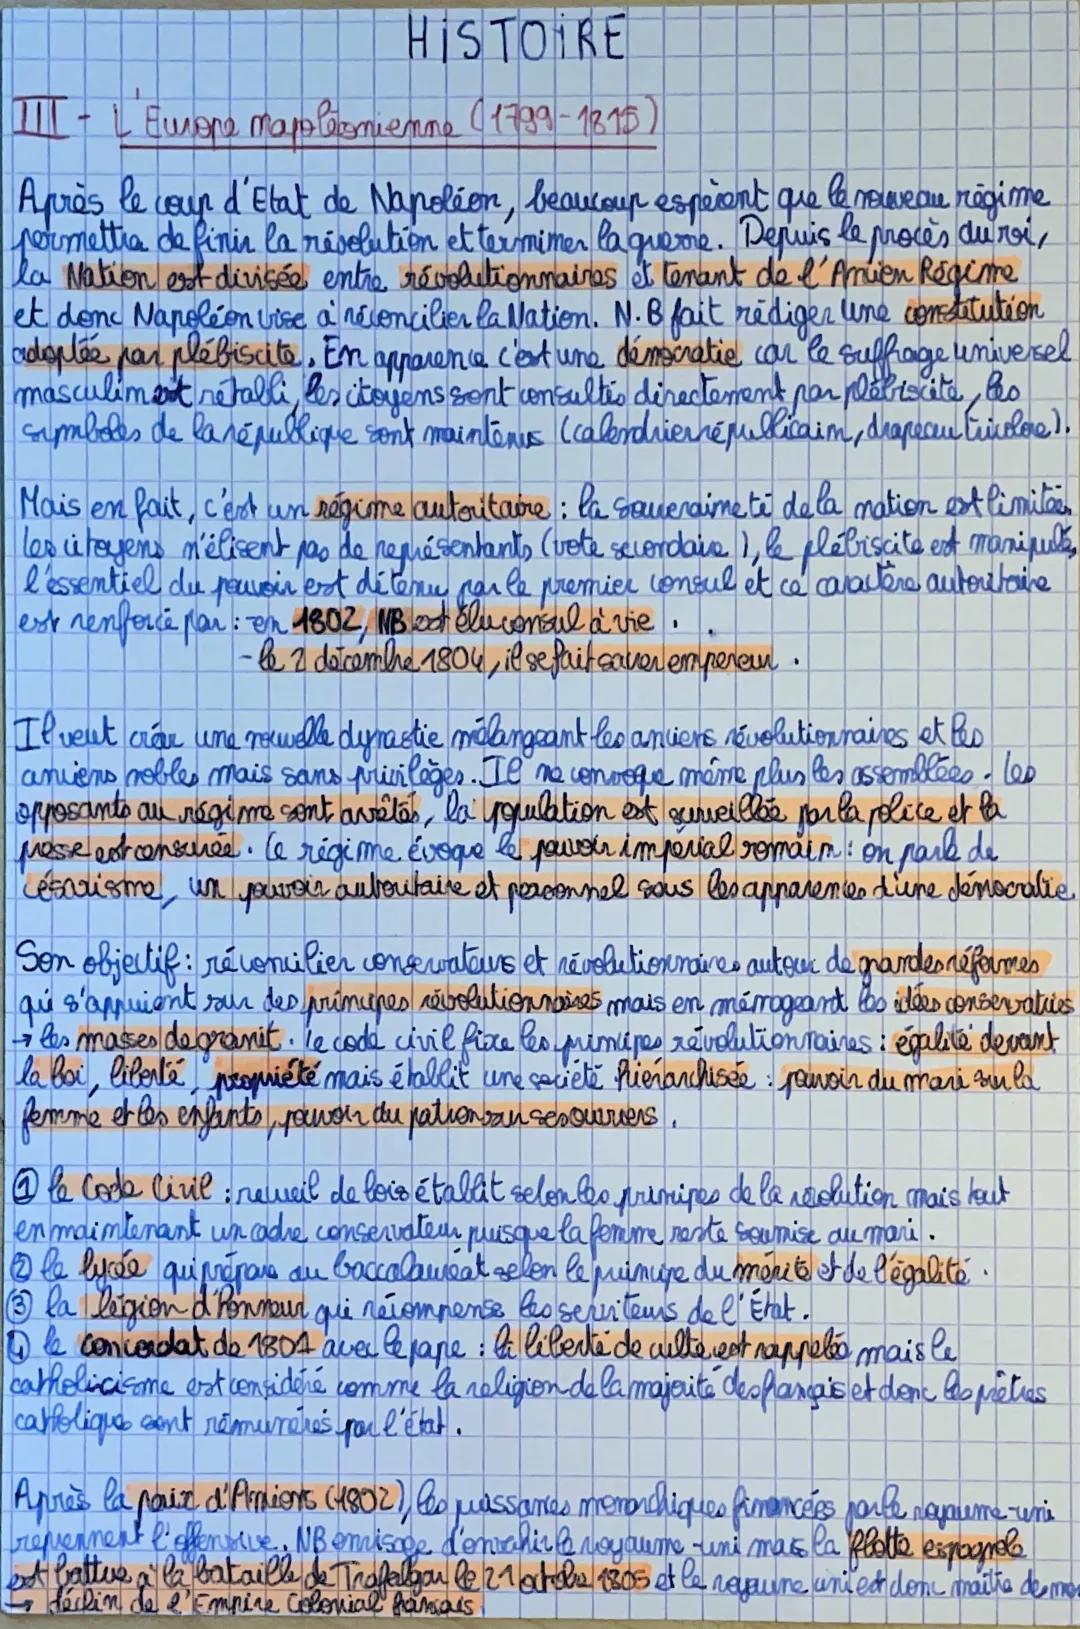 HISTOIRE
III - L'Europe napoléonienne (1799-1815)
Après le coup d'Etat de Napoléon, beaucoup espèrent que le nouveau régime
permettra de finir la révolution et terminer la guerre. Depuis le procès du roi,
la Nation est divisée entre révolutionnaires et tenant de l'Ancien Régime
et donc Napoléon vise à réconcilier la Nation. N.B fait rédiger une constitution
adoptée par plébiscite. En apparence c'est une démocratie car le suffrage universel
masculin est rétabli, les citoyens sont consultés directement par plébiscite, les
symboles de la république sont maintenus (calendrier républicain, drapeau tricolore).
Mais en fait, c'est un régime autoritaire : la souveraineté de la nation est limitée,
les citoyens n'élisent pas de représentants (vote secondaire), le plébiscite est manipulé,
l'essentiel du pouvoir est détenu par le premier consul et ce caractère autoritaire
est renforcé par : - en 1802, NB est élu consul à vie.
- le 2 décembre 1804, il se fait sacrer empereur.
Il veut créer une nouvelle dynastie mélangeant les anciens révolutionnaires et les
anciens nobles mais sans privilèges. Il ne convoque même plus les assemblées. Les
opposants au régime sont arrêtés, la population est surveillée par la police et la
presse est censurée. Le régime évoque le pouvoir impérial romain : on parle de
césarisme, un pouvoir autoritaire et personnel sous les apparences d'une démocratie.
Son objectif : réconcilier conservateurs et révolutionnaires autour de grandes réformes
qui s'appuient sur des principes révolutionnaires mais en ménageant les idées conservatrices
→ les masses de granit. Le code civil fixe les principes révolutionnaires : égalité devant
la loi, liberté, propriété mais établit une société hiérarchisée : pouvoir du mari sur la
femme et les enfants, pouvoir du patron sur ses ouvriers.
① le Code Civil : recueil de lois établit selon les principes de la révolution mais tout
en maintenant un cadre conservateur puisque la femme reste soumise au mari.
② le lycée qui prépare au baccalauréat selon le principe du mérite et de l'égalité.
③ la légion d'honneur qui récompense les serviteurs de l'État.
④ le concordat de 1801 avec le pape : la liberté de culte est rappelée mais le
catholicisme est considéré comme la religion de la majorité des français et donc les prêtres
catholiques sont rémunérés par l'état.
Après la paix d'Amiens (1802), les puissances monarchiques financées par le royaume-uni
reprennent l'offensive. NB envisage d'envahir le royaume-uni mais la flotte espagnole
est battue à la bataille de Trafalgar le 21 octobre 1805 et le royaume uni est donc maître des
→ déclin de l'Empire Colonial français.